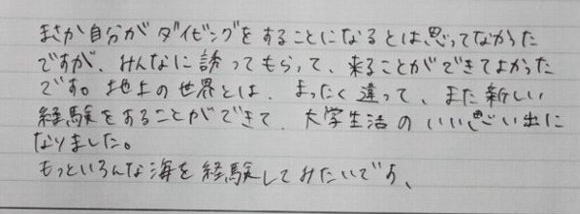 まさか自分がダイビングをすることになるとは思ってなかった
ですが、みんなに誘ってもらって、来ることができてよかった
です。地上の世界とは、まったく違って、また新しい
経験をすることができて、大学生活のいい思い出に
なりました。
もっといろんな海を経験してみたいです、